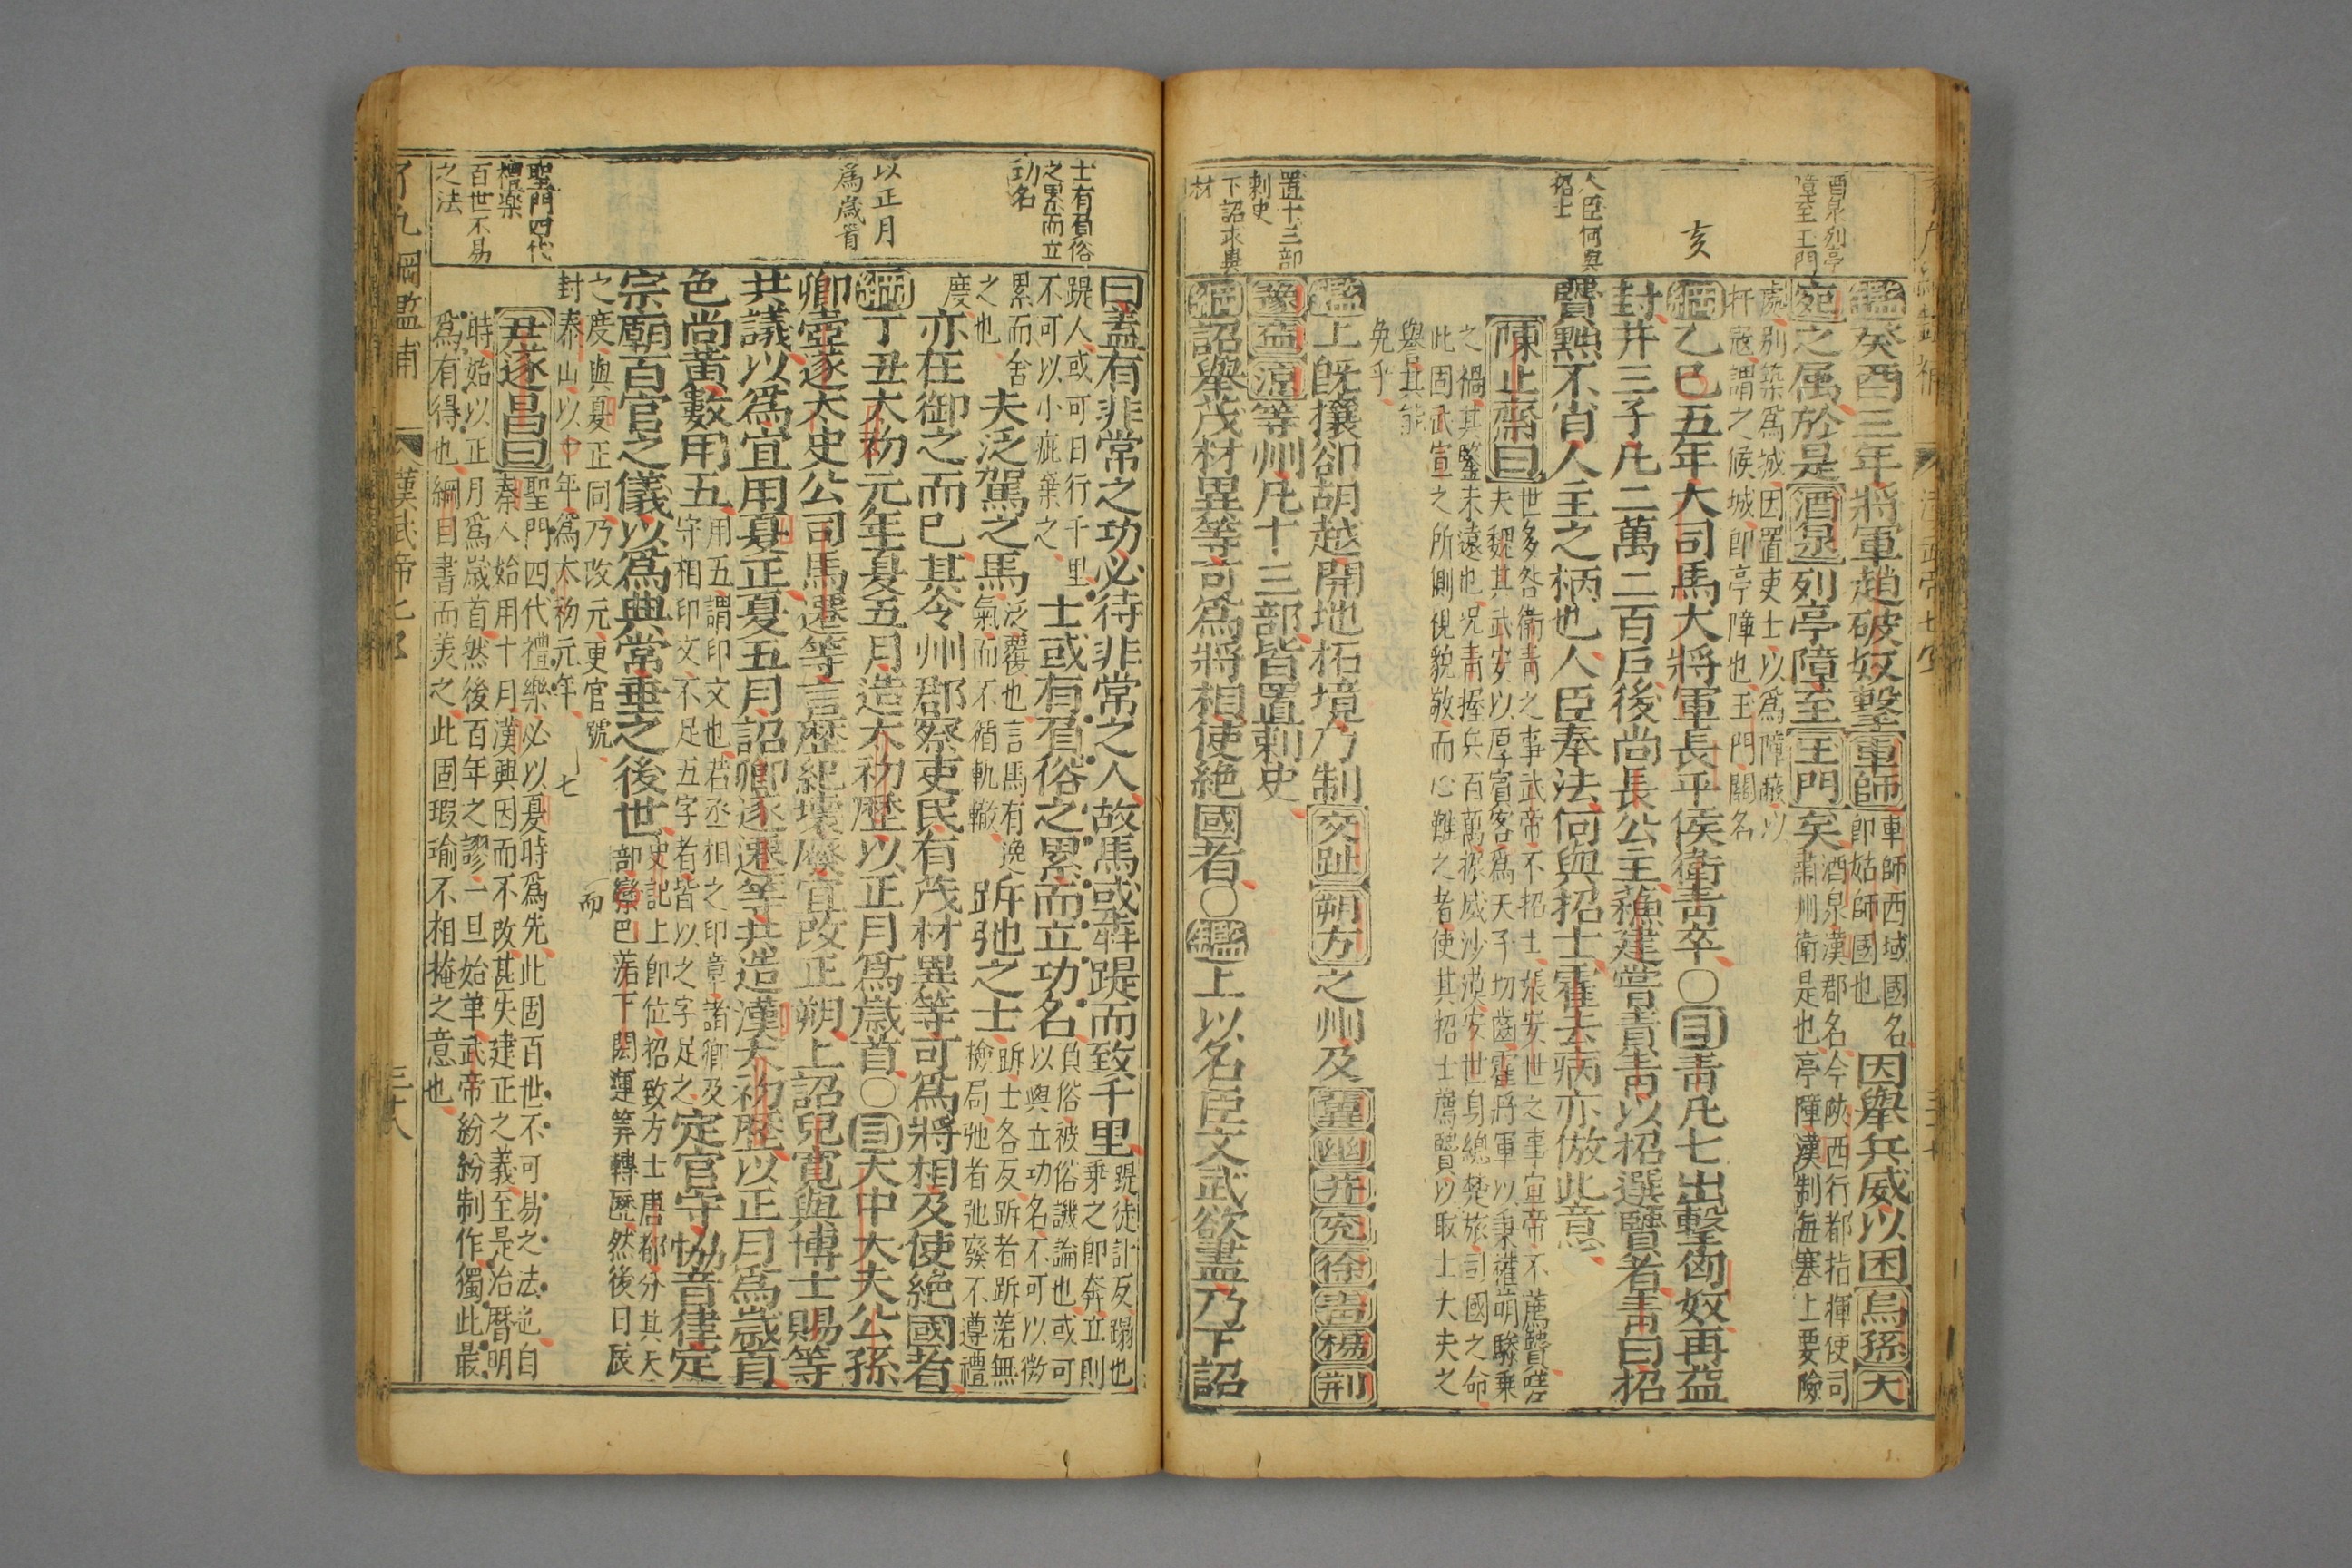 酒泉列亭
障至玉門
亥
人臣何與
招士
置十三部
刺史
下詔求異
材
鑑癸酉三年將軍趙破奴擊車師
車師西域國名
即姑師國也
因舉兵威以困烏孫大
宛之属於是酒泉列亭障至玉門矣
酒泉漢郡名今陜西行都指揮使司
肅州衛是也亭障漢制每塞上要險
處别築爲城因置吏士以爲障蔽以
扞寇謂之候城即亭障也玉門關名
綱乙巳五年大司馬大將軍長平侯衛青卒〇目青凡七出擊匈奴再益
封并三子凡二萬二百户後尚長公主蘇建嘗責青以招選賢者青曰招
賢黜不肖人主之柄也人臣奉法何與招士霍去病亦倣此意
陳止齋曰
世多咎衛青之事武帝不招士張安世之事宣帝不薦賢
夫魏其武安以厚賓客爲天子切齒霍將軍以秉權萌驂乗
之禍其鑒未遠也况青握兵百萬振威沙漠安世身總楚旅司國之命
此固武宣之所側視貌敬而心難之者使其招士薦賢以取士大夫之
譽其能
免乎
鑑上既攘卻胡越開地拓境乃制交趾朔方之州及冀幽并兖徐青楊荆
豫益凉等州凡十三部皆置刺史
綱詔舉茂材異等可爲將相使絶國者〇鑑上以名臣文武欲盡乃下詔
士有負俗
之累而立
功名
以正月
爲歲首
聖門四代
禮樂
百世不易
之法
曰蓋有非常之功必待非常之人故馬或奔踶而致千里
踶徒計反蹋也
乗之即奔立則
踶人或可日行千里
不可以小疵棄之
士或有負俗之累而立功名
負俗被俗譏論也或可
以興立功名不可以微
累而舍
之也
夫泛駕之馬
泛覆也言馬有逸
氣而不循軌轍
跅弛之士
跅士各反跅者跅落無
檢局弛者弛廢不遵禮
度
亦在御之而已其令州郡察吏民有茂材異等可爲將相及使絶國者
綱丁丑太初元年夏五月造太初歷以正月爲歲首〇目大中大夫公孫
卿壺遂太史公司馬遷等言歷紀壞廢宜改正朔上詔兒寛與博士賜等
共議以爲宜用夏正夏五月詔卿遂遷等共造漢太初歷以正月爲歲首
色尚黄數用五
用五謂印文也若丞相之印章諸卿及
守相印文不足五字者皆以之字足之
定官守協音律定
宗廟百官之儀以爲典常垂之後世
史記上即位招致方士唐都分其天
部巴落下閎運筭轉歷然後日辰
之度與夏正同乃改元更官號
封泰山以十年爲太初元年
七
而
尹遂昌曰
聖門四代禮樂必以夏時爲先此固百世不可易之法也自
秦人始用十月漢興因而不改甚失建正之義至是治曆明
時始以正月爲歲首然後百年之謬一旦始革武帝紛紛制作獨此最
爲有得也綱目書而美之此固瑕瑜不相掩之意也
了九綱鑑補
漢武帝七卷
三十八